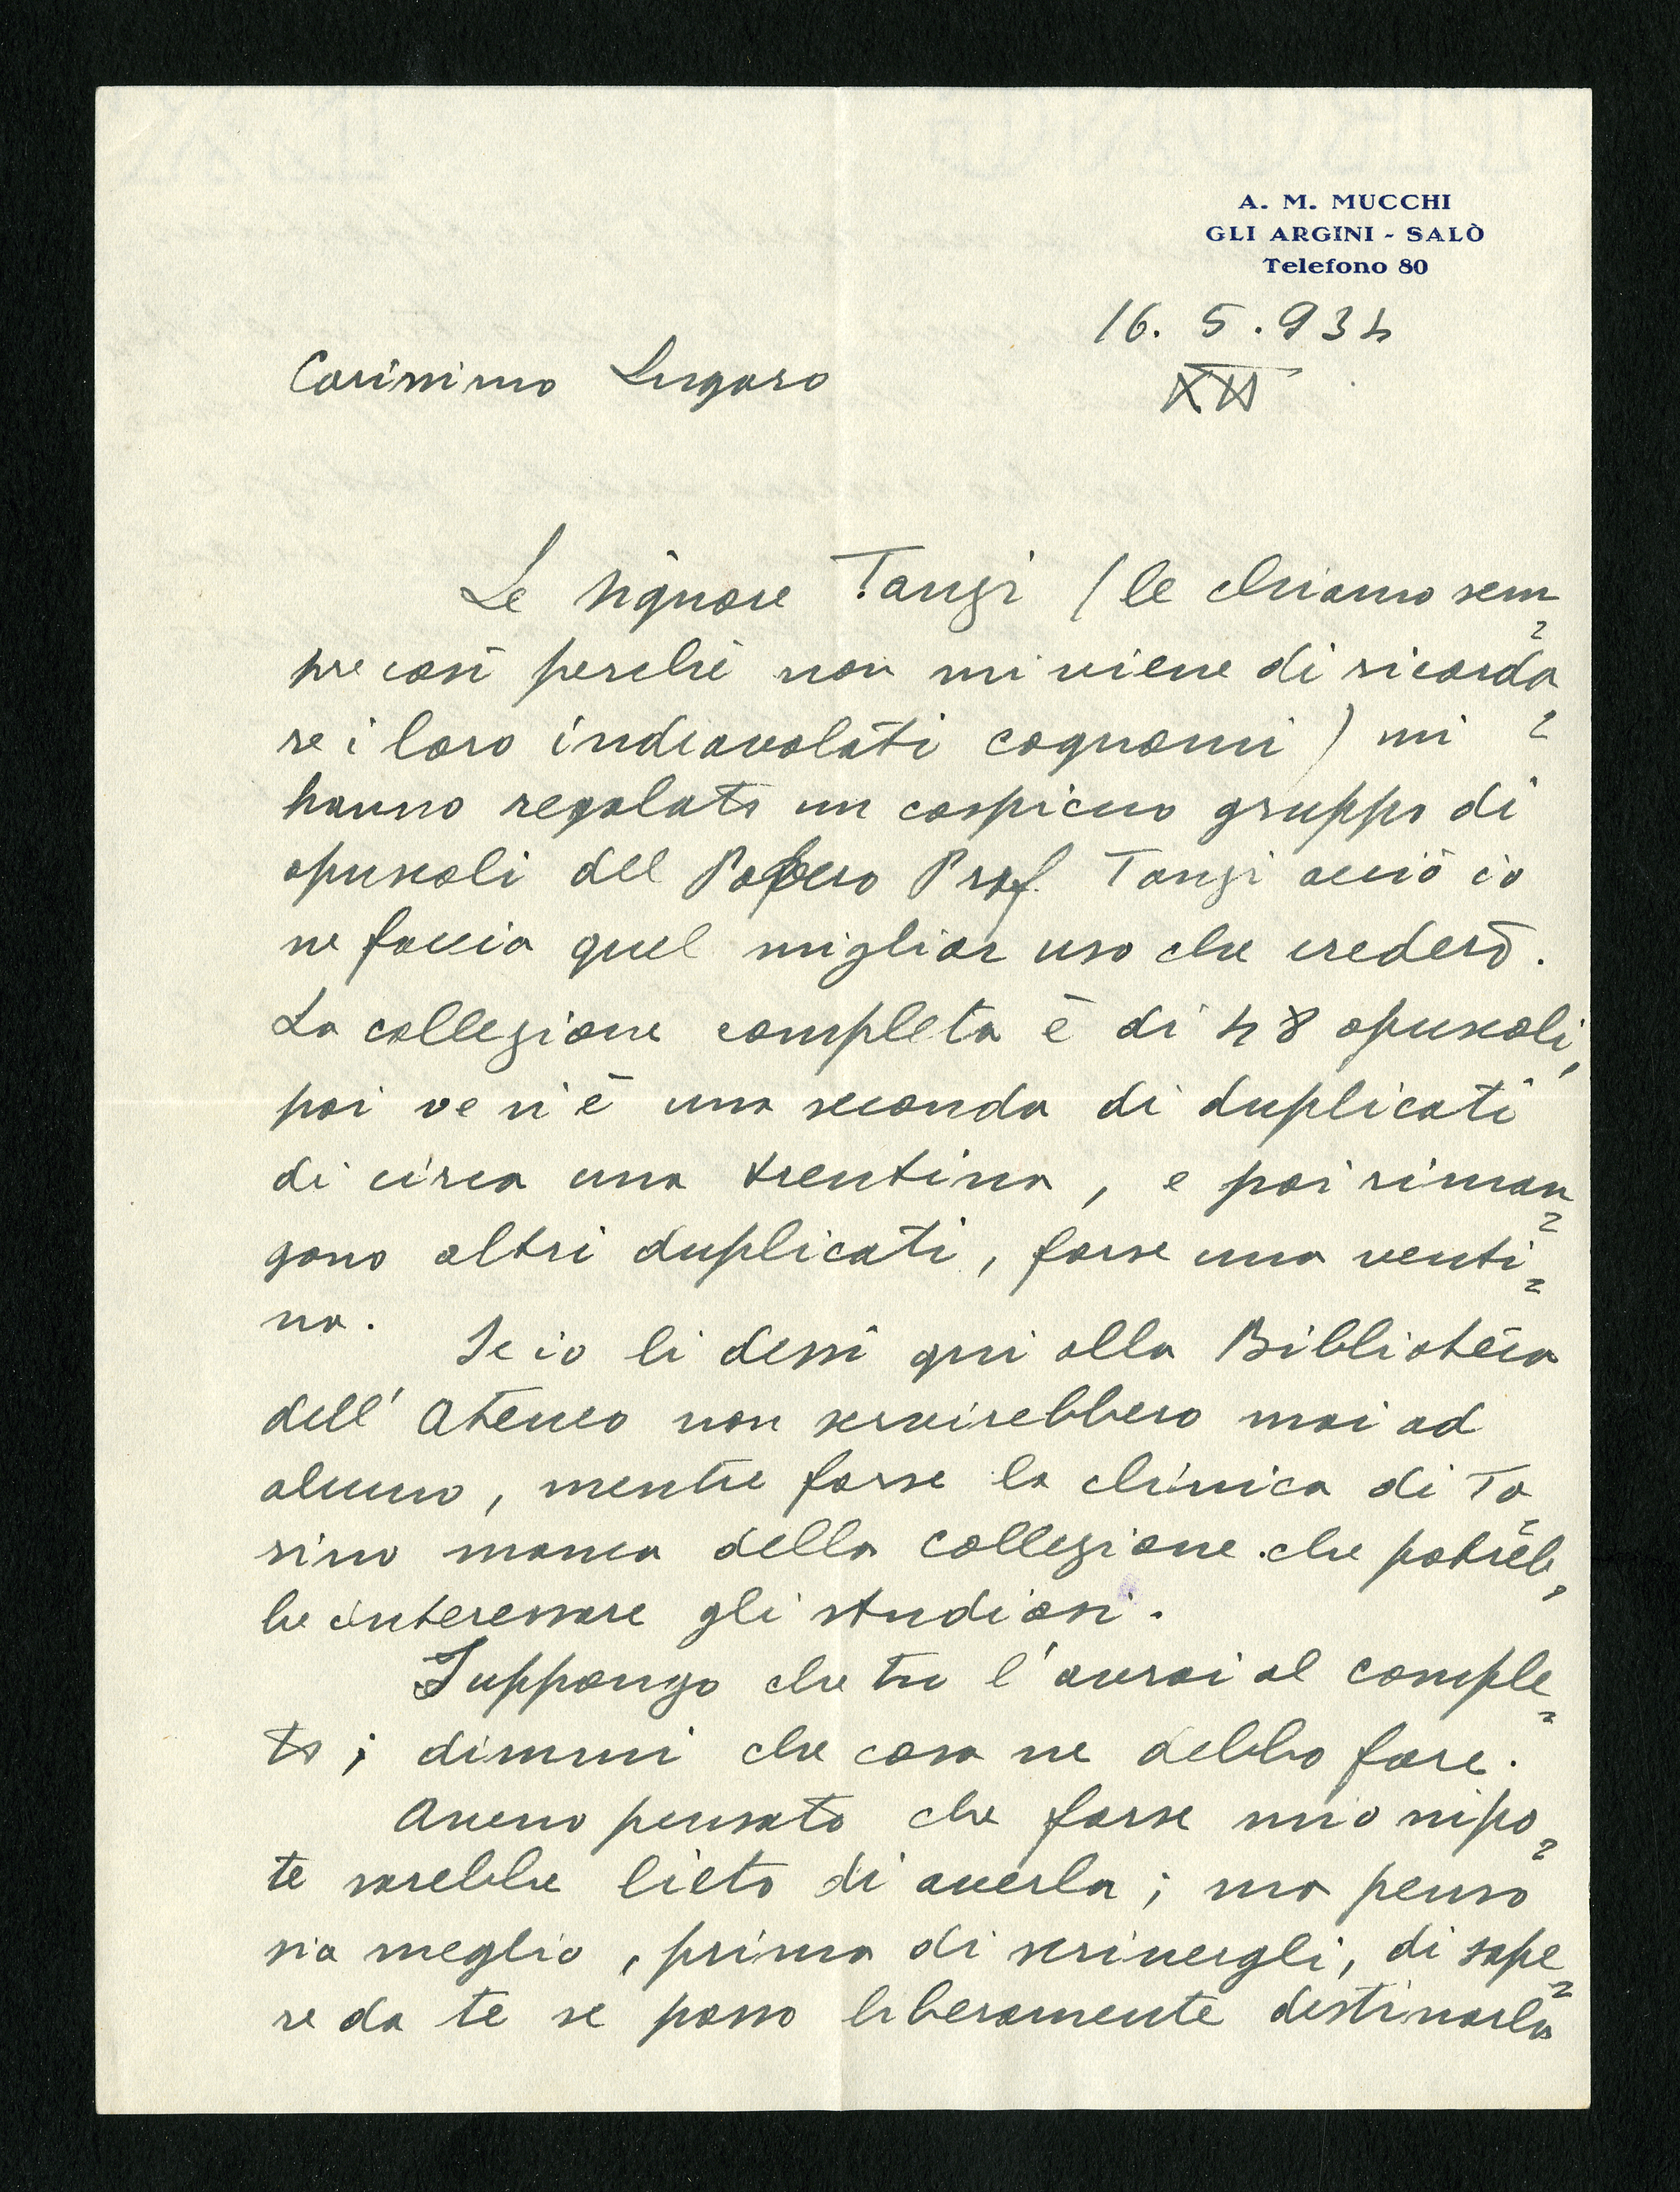 A. M. MUCCHI
GLI ARGINI - SALÒ
Telefono 80
16. 5. 934
XII
Carissimo Lugaro
Le signore Tanzi (le chiamo sem=
pre così perchè non mi viene di ricorda=
re i loro indiavolati cognomi) mi
hanno regalato un cospicuo gruppo di
opuscoli del Povero Prof. Tanzi acciò io
ne faccia quel miglior uso che crederò.
La collezione completa è di 48 opuscoli,
poi ve n'è una seconda di duplicati
di circa una trentina, e poi riman=
gono altri duplicati, forse una venti=
na.
Se io li dessi qui alla Biblioteca
dell' Ateneo non servirebbero mai ad
alcuno, mentre forse la clinica di To=
rino manca della collezione che potreb=
be interessare gli studiosi.
Suppongo che tu l'avrai al comple=
to; dimmi che cosa ne debbo fare.
Avevo pensato che forse mio nipo=
te sarebbe lieto di averla; ma penso
sia meglio, prima di scrivergli, di sape=
re da te se posso liberamente destinarla